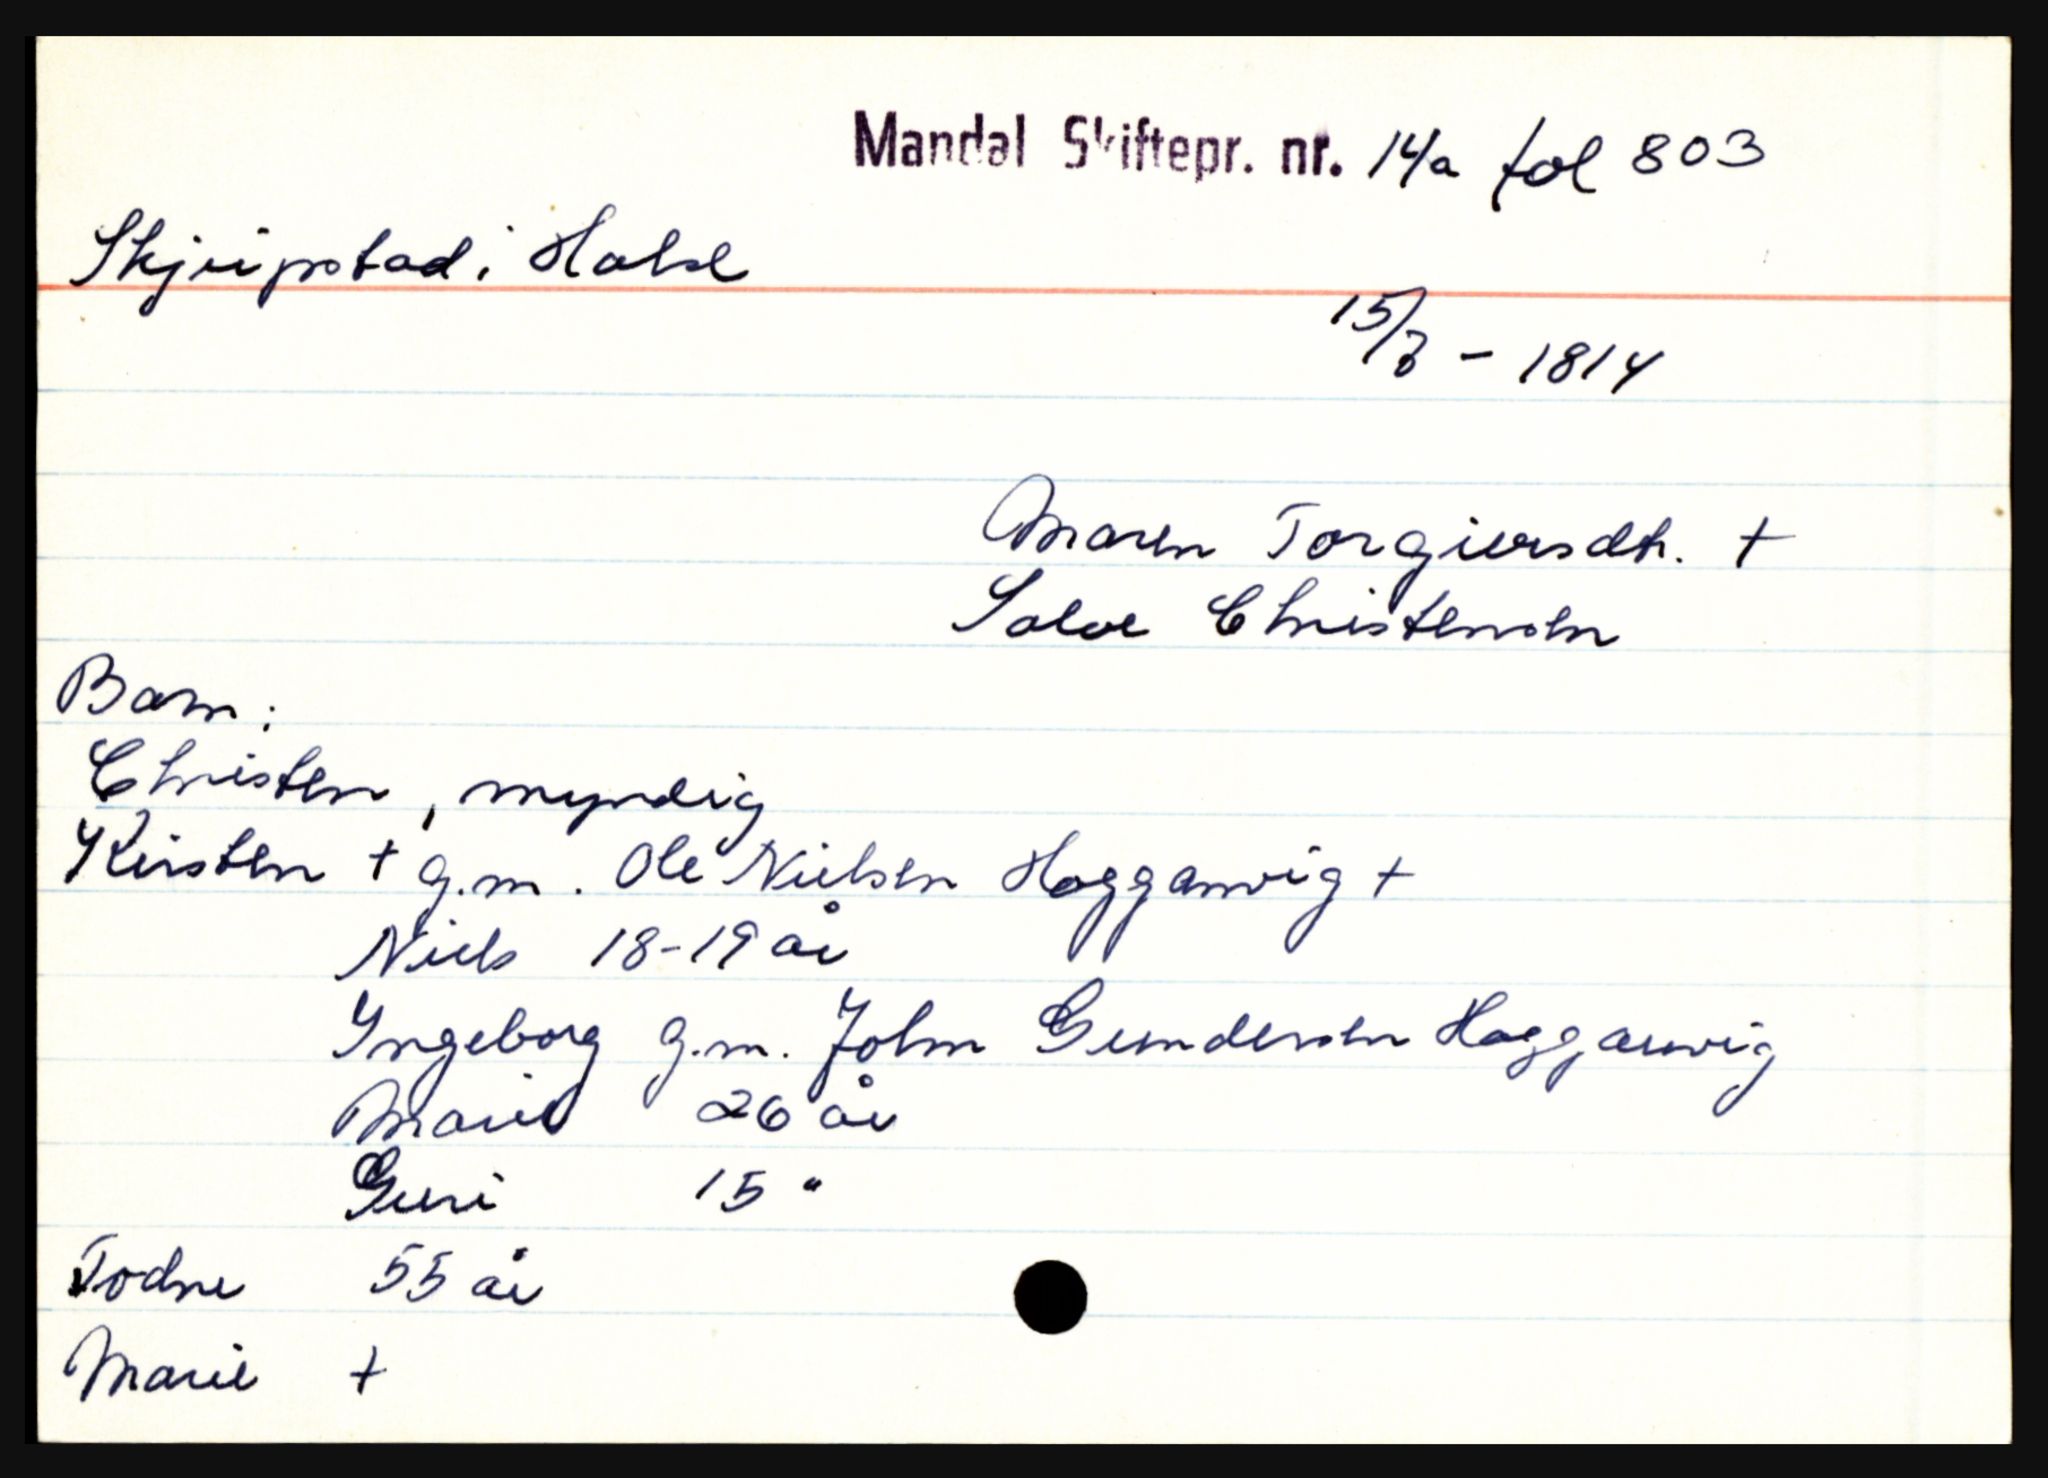 Mandal Skiftepr. nr. 14a fol 803
Skjeipstad i Halse
15/7 - 1814
Maren Torgiersdtr. +
Salve Christensen
Barn:
Christen, myndig
Kirsten + g.m. Ole Nielsen Hogganvig +
Niels 18-19 år
Yngeborg g.m. John Gundersen Hogganvig
Marie 26 år
Guri 15 "
Todne 55 år
Marie +